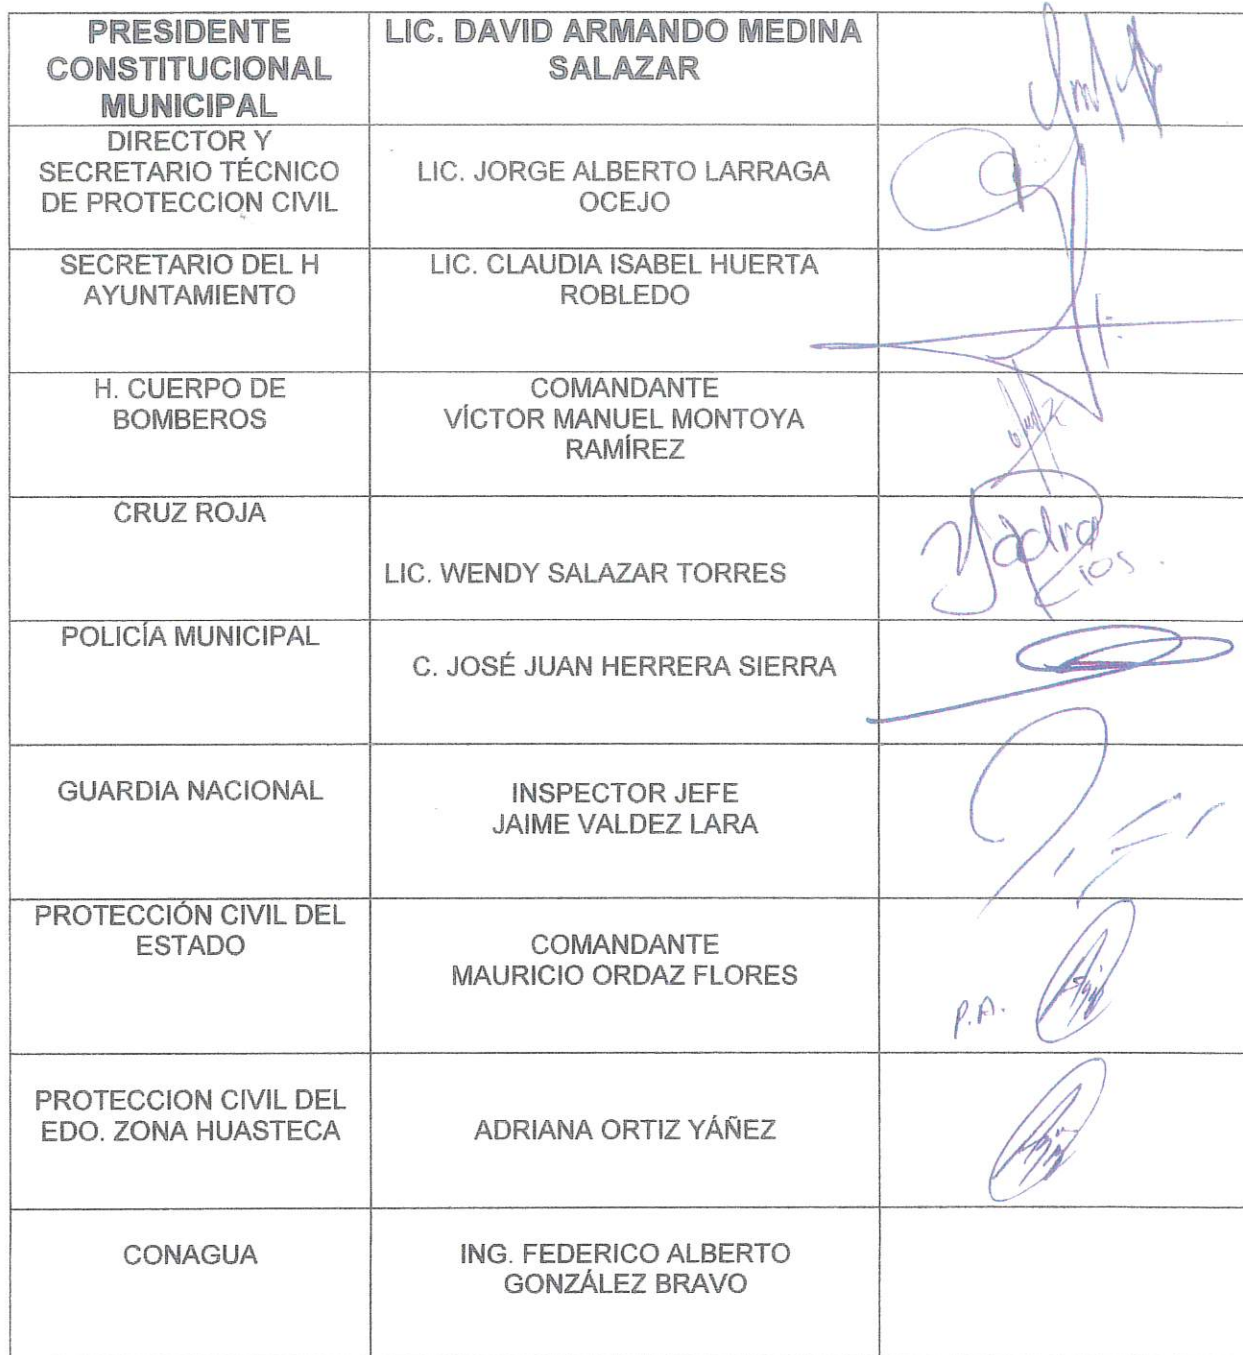 PRESIDENTE
CONSTITUCIONAL
MUNICIPAL
LIC. DAVID ARMANDO MEDINA
SALAZAR
DIRECTOR Y
SECRETARIO TÉCNICO
DE PROTECCION CIVIL
LIC. JORGE ALBERTO LARRAGA
OCEJO
SECRETARIO DEL H
AYUNTAMIENTO
LIC. CLAUDIA ISABEL HUERTA
ROBLEDO
H. CUERPO DE
BOMBEROS
COMANDANTE
VÍCTOR MANUEL MONTOYA
RAMÍREZ
CRUZ ROJA
LIC. WENDY SALAZAR TORRES
POLICÍA MUNICIPAL
C. JOSÉ JUAN HERRERA SIERRA
GUARDIA NACIONAL
INSPECTOR JEFE
JAIME VALDEZ LARA
PROTECCIÓN CIVIL DEL
ESTADO
COMANDANTE
MAURICIO ORDAZ FLORES
P.A.
PROTECCION CIVIL DEL
EDO. ZONA HUASTECA
ADRIANA ORTIZ YÁÑEZ
CONAGUA
ING. FEDERICO ALBERTO
GONZÁLEZ BRAVO